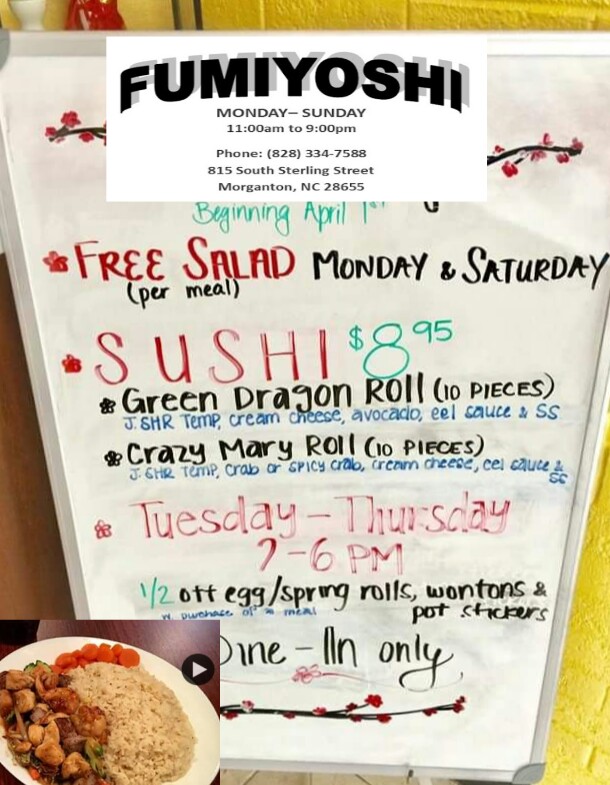 FUMIYOSHI
MONDAY– SUNDAY
11:00am to 9:00pm
Phone: (828) 334-7588
815 South Sterling Street
Morganton, NC 28655
Beginning April 1st
FREE SALAD MONDAY & SATURDAY
(per meal)
SUSHI $8.95
Green Dragon Roll (10 PIECES)
J. SHR Temp, cream cheese, avocado, eel sauce & SS
Crazy Mary Roll (10 PIECES)
J. SHR TEMP, Crab or SPICY crab, cream cheese, eel sauce &
SS
Tuesday – Thursday
2-6 PM
1/2 off egg/spring rolls, wontons &
w. purchase of a meal pot stickers
Dine-IIn only